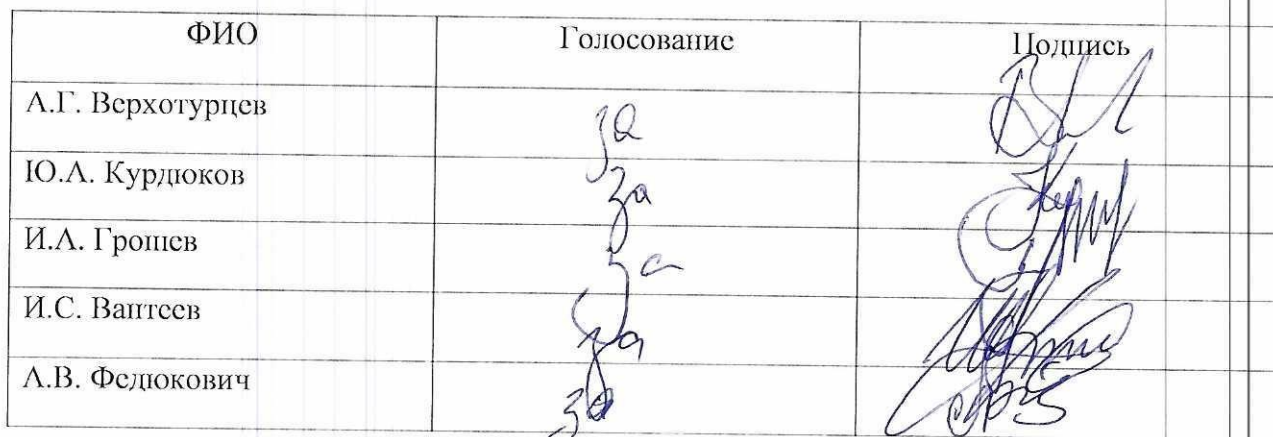 ФИО Голосование Подпись
А.Г. Верхотурцев за
Ю.А. Курдюков за
И.А. Грошев за
И.С. Ваптеев за
А.В. Федюкович за